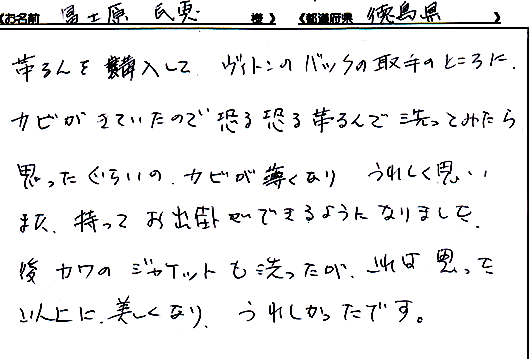 《お名前 冨士原 民恵 様》 《都道府県 徳島県 》
革るんを購入して、ヴィトンのバックの取手のところに、
カビがきていたので恐る恐る革るんで洗ってみたら
思ったぐらいの、カビが薄くなり うれしく思い
また、持ってお出掛けできるようになりました。
後 カワのジャケットも洗ったが、これは思った
以上に、美しくなり、うれしかったです。